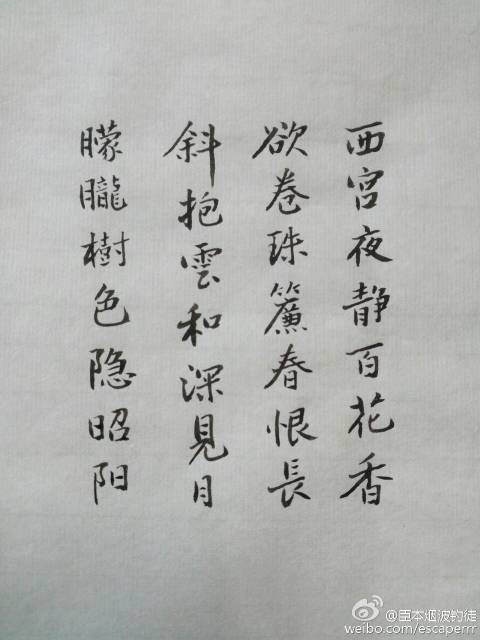 西宫夜静百花香
欲卷珠簾春恨長
斜抱雲和深見月
朦朧樹色隐昭阳
@臣本烟波钓徒
weibo.com/escaperrr